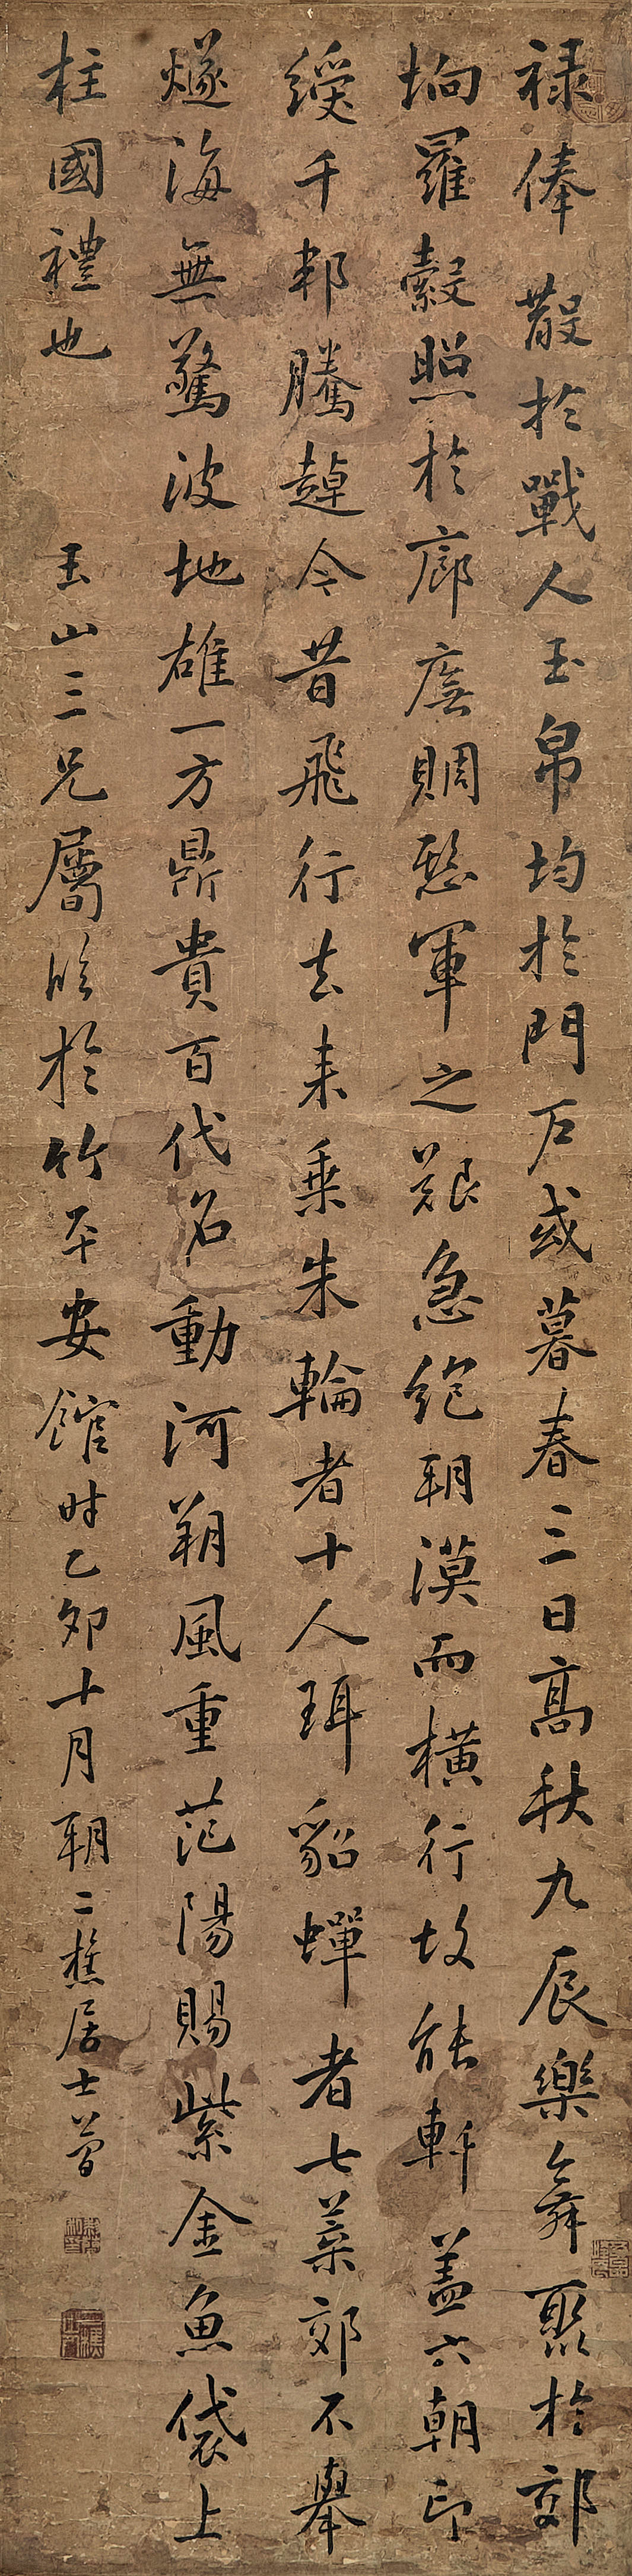 祿俸散於戰人玉帛均於門戶或暮春三日高秋九辰樂舞聚於郊
坰羅縠照於廊廡賙愍軍之艱急絕朔漠而橫行故能軒蓋六朝印
綬千邦騰趠今昔飛行去來乘朱輪者十人珥貂蟬者七葉郊不舉
燧海無驚波地雄一方鼎貴百代名動河朔風重范陽賜紫金魚袋上
柱國禮也
玉山三兄屬臨於竹平安館時乙卯十月朔二樵居士簡